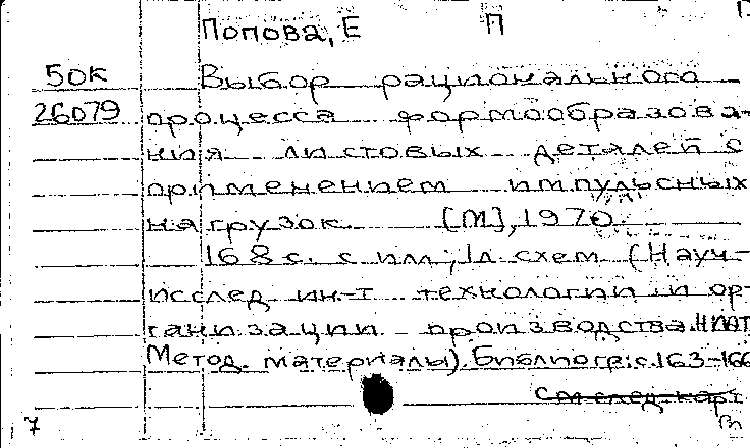 Попова, Е П
50к Выбор рационального
26079 процесса формообразова-
ния листовых деталей с
применением импульсных
нагрузок [М], 1970.
168 с. с ил; 1л схем (Науч-
исслед ин-т технологии и ор-
ганизации производства НИАТ
Метод. материалы). Библиогр: с. 163-166
См след. карт
7